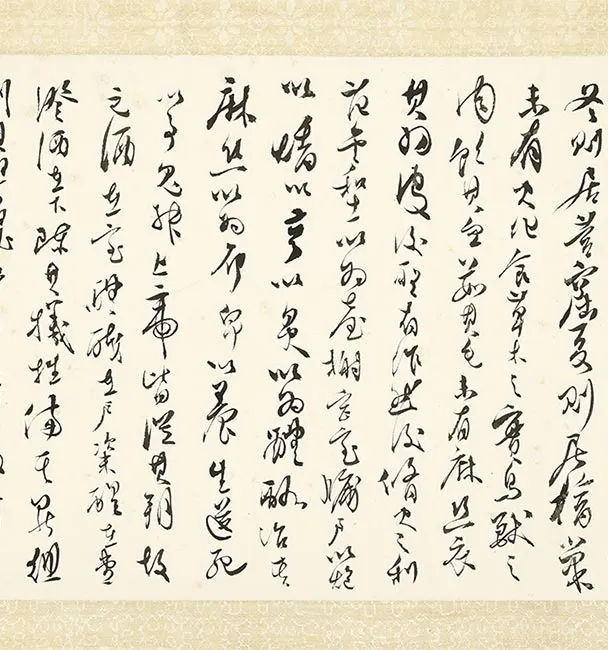 冬則居營窟夏則居橧巢
未有火化食草木之實鳥獸之
肉飲其血茹其毛未有麻絲衣
其羽皮後聖有作然後脩火之利
范金合土以為臺榭宮室牖戶以炮
以燔以亨以炙以為醴酪治其
麻絲以為布帛以養生送死
以事鬼神上帝皆從其朔故
玄酒在室醴醆在戶粢醍在堂
澄酒在下陳其犧牲備其鼎俎